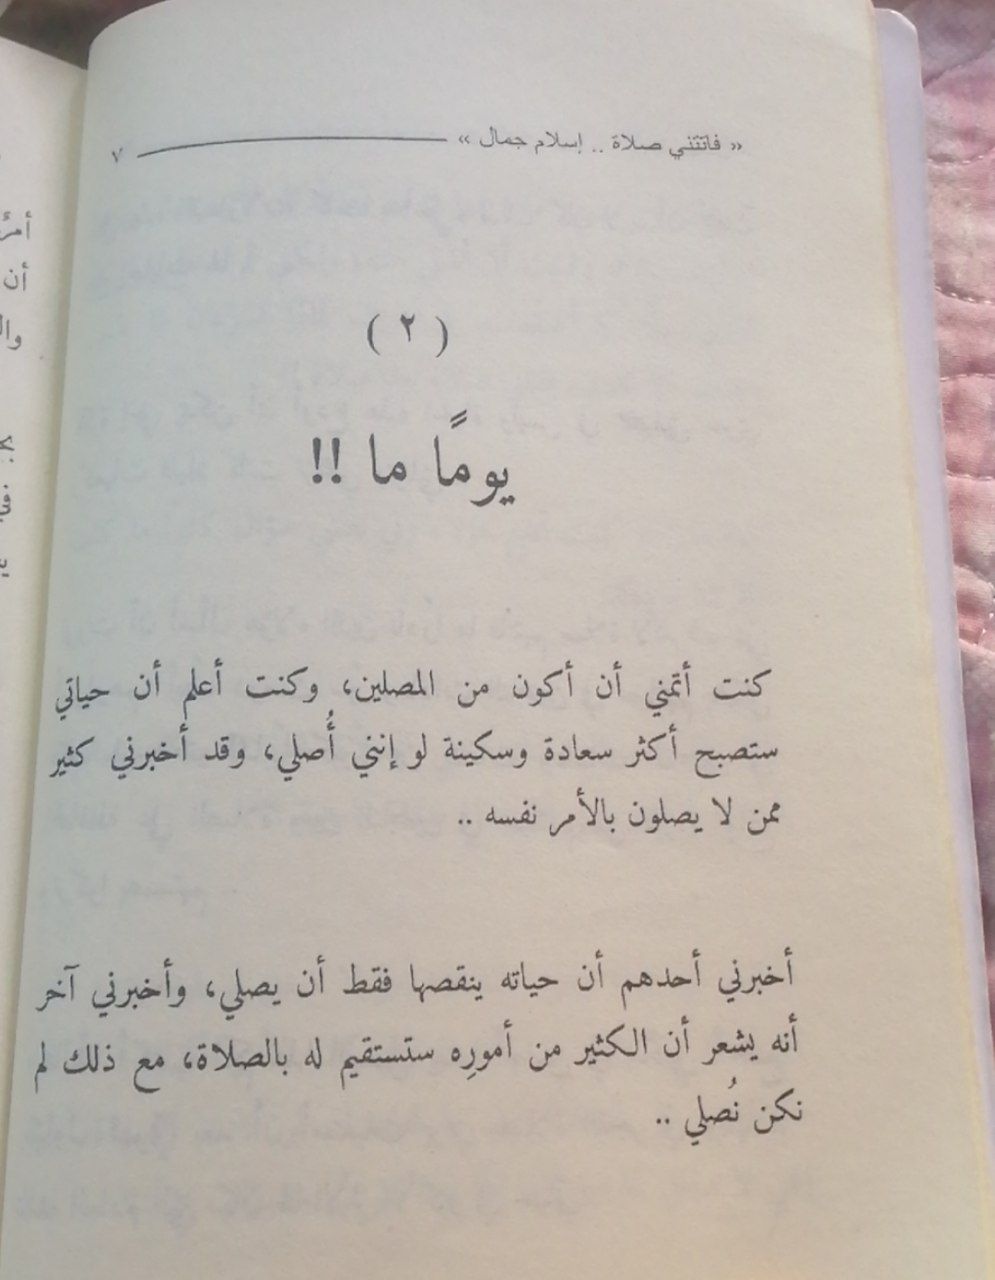 « فاتتني صلاة .. إسلام جمال »
٧
( ٢ )
يومًا ما !!
كنت أتمنى أن أكون من المصلين، وكنت أعلم أن حياتي
ستصبح أكثر سعادة وسكينة لو إنني أُصلي، وقد أخبرني كثير
ممن لا يصلون بالأمر نفسه ..
أخبرني أحدهم أن حياته ينقصها فقط أن يصلي، وأخبرني آخر
أنه يشعر أن الكثير من أمورِه ستستقيم له بالصلاة، مع ذلك لم
نكن نُصلي ..
أن